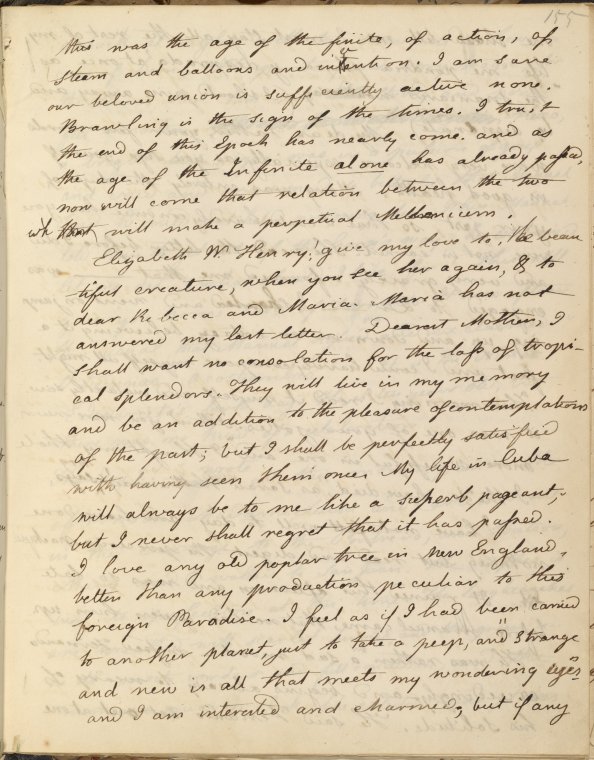 155
this was the age of the finite, of action, of
steam and balloons and invention. I am sure
our beloved union is sufficiently active none.
Brawling is the sign of the times. I trust
the end of this Epoch has nearly come. and as
the age of the Infinite alone has already passed,
now will come that relation between the two
wh will make a perpetual Millenium.
Elizabeth W. Henry! give my love to, the beau
tiful creature, when you see her again, & to
dear Rebecca and Maria. Maria has not
answered my last letter. Dearest Mother, I
shall want no consolation for the loss of tropi-
cal splendors. They will live in my memory
and be an addition to the pleasure of contemplations
of the past; but I shall be perfectly satisfied
with having seen them once. My life in Cuba
will always be to me like a superb pageant,
but I never shall regret that it has passed.
I love any old poplar tree in New England,
better than any production peculiar to this
foreign Paradise. I feel as if I had been carried
to another planet, just to take a peep, and "strange
and new is all that meets my wondering eyes"
and I am interested and charmed; but if any